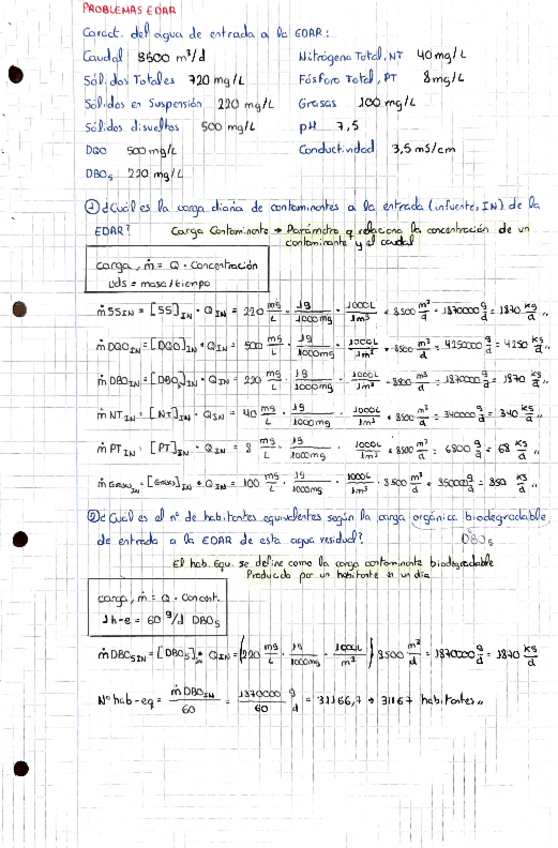 PROBLEMAS EDAR
Caract. del agua de entrada a la EDAR:
Caudal 8500 m³/d Nitrógeno Total, NT 40 mg/L
Sólidos Totales 720 mg/L Fósforo Total, PT 8 mg/L
Sólidos en Suspensión 220 mg/L Grasas 100 mg/L
Sólidos disueltos 500 mg/L pH 7,5
DQO 500 mg/L Conductividad 3,5 mS/cm
DBO₅ 220 mg/L
① ¿Cuál es la carga diaria de contaminantes a la entrada (influente, IN) de la
EDAR? Carga Contaminante → Parámetro q relaciona la concentración de un
contaminante y el caudal
carga, ṁ = Q · Concentración
uds = masa/tiempo
ṁ SS IN = [SS] IN · Q IN = 220 mg/L · 1g/1000mg · 1000L/1m³ · 8500 m³/d = 1870000 g/d = 1870 kg/d
ṁ DQO IN = [DQO] IN · Q IN = 500 mg/L · 1g/1000mg · 1000L/1m³ · 8500 m³/d = 4250000 g/d = 4250 kg/d
ṁ DBO IN = [DBO₅] IN · Q IN = 220 mg/L · 1g/1000mg · 1000L/1m³ · 8500 m³/d = 1870000 g/d = 1870 kg/d
ṁ NT IN = [NT] IN · Q IN = 40 mg/L · 1g/1000mg · 1000L/1m³ · 8500 m³/d = 340000 g/d = 340 kg/d
ṁ PT IN = [PT] IN · Q IN = 8 mg/L · 1g/1000mg · 1000L/1m³ · 8500 m³/d = 6800 g/d = 68 kg/d
ṁ Grasas IN = [Grasas] IN · Q IN = 100 mg/L · 1g/1000mg · 1000L/1m³ · 8500 m³/d = 850000 g/d = 850 kg/d
② ¿Cuál es el nº de habitantes equivalentes según la carga orgánica biodegradable
de entrada a la EDAR de esta agua residual? DBO₅
El hab. Equ. se define como la carga contaminante biodegradable
Producida por un habitante en un día
carga, ṁ = Q · Concent.
1 h-e = 60 g/d DBO₅
ṁ DBO₅ IN = [DBO₅] IN · Q IN = (220 mg/L · 1g/1000mg · 1000L/m³) 8500 m³/d = 1870000 g/d = 1870 kg/d
Nº hab-eq = ṁ DBO IN/60 = 1870000/60 g/d = 31166,7 → 31167 habitantes